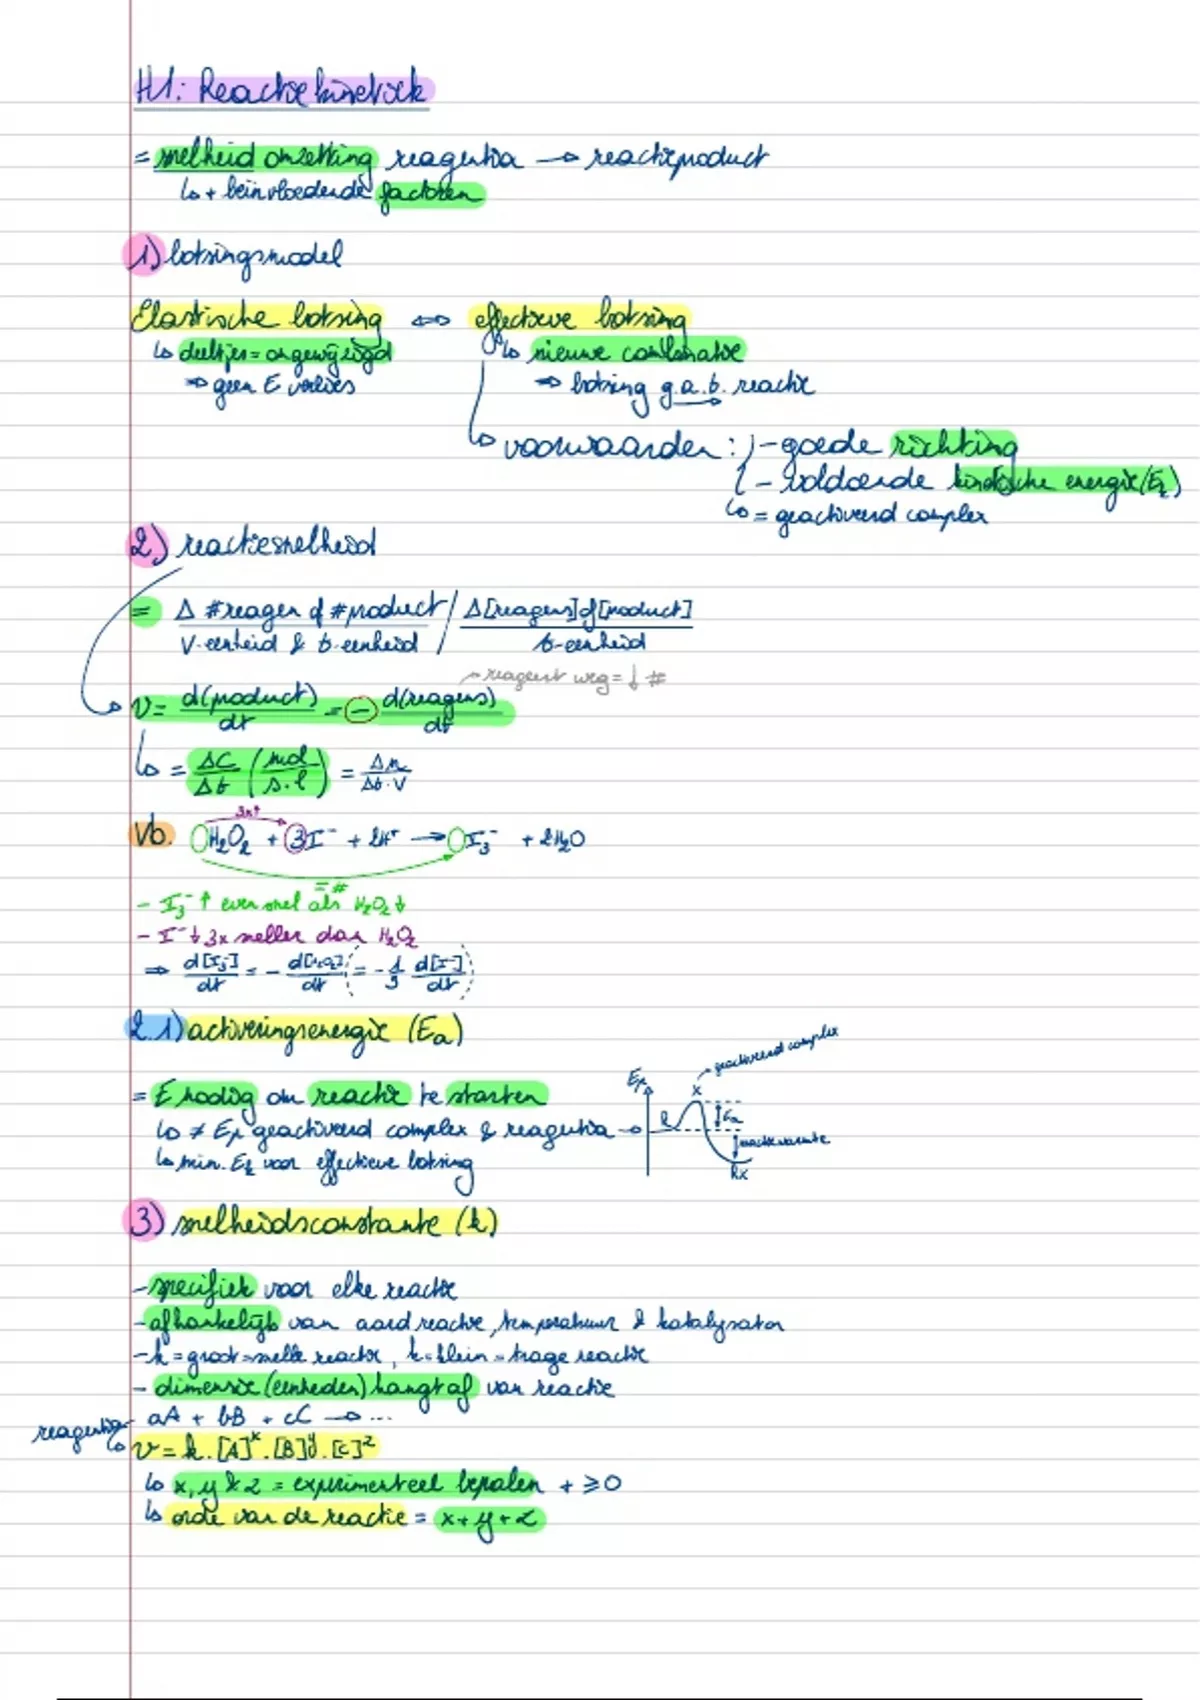 H1: Reactiekinetiek
= snelheid omzetting reagentia → reactieproduct
↳ + beïnvloedende factoren
1) botsingsmodel
Elastische botsing ⇔ effectieve botsing
↳ deeltjes = ongewijzigd ↳ nieuwe combinatie
⇒ geen E verlies ⇒ botsing g.a.b. reactie
↳ voorwaarden: - goede richting
- voldoende kinetische energie (Ek)
↳ = geactiveerd complex
2) reactiesnelheid
= Δ #reagen of #product / Δ[reagens] of [product]
V-eenheid & t-eenheid t-eenheid
reagent weg = ↓ #
v = d(product)/dt = - d(reagens)/dt
↳ = ΔC/Δt (mol/s.l) = Δn/Δt.V
3x↑
Vb. H₂O₂ + 3I⁻ + 2H⁺ → I₃⁻ + 2H₂O
= #
- I₃⁻ ↑ even snel als H₂O₂ ↓
- I⁻ ↓ 3x sneller dan H₂O₂
⇒ d[I₃⁻]/dt = - d[H₂O₂]/dt (= - 1/3 d[I⁻]/dt)
2.1) activeringsenergie (Ea)
geactiveerd complex
Ep x
= E nodig om reactie te starten
R Ea
↳ ≠ Ep geactiveerd complex & reagentia →
reactiewarmte
↳ min. Ek voor effectieve botsing
Rx
3) snelheidsconstante (k)
- specifiek voor elke reactie
- afhankelijk van aard reactie, temperatuur & katalysator
- k = groot = snelle reactie, k = klein = trage reactie
- dimensie (eenheden) hangt af van reactie
aA + bB + cC → ...
reagentia
↳ v = k.[A]ˣ.[B]ʸ.[C]ᶻ
↳ x, y & z = experimenteel bepalen + ≥0
↳ orde van de reactie = x + y + z